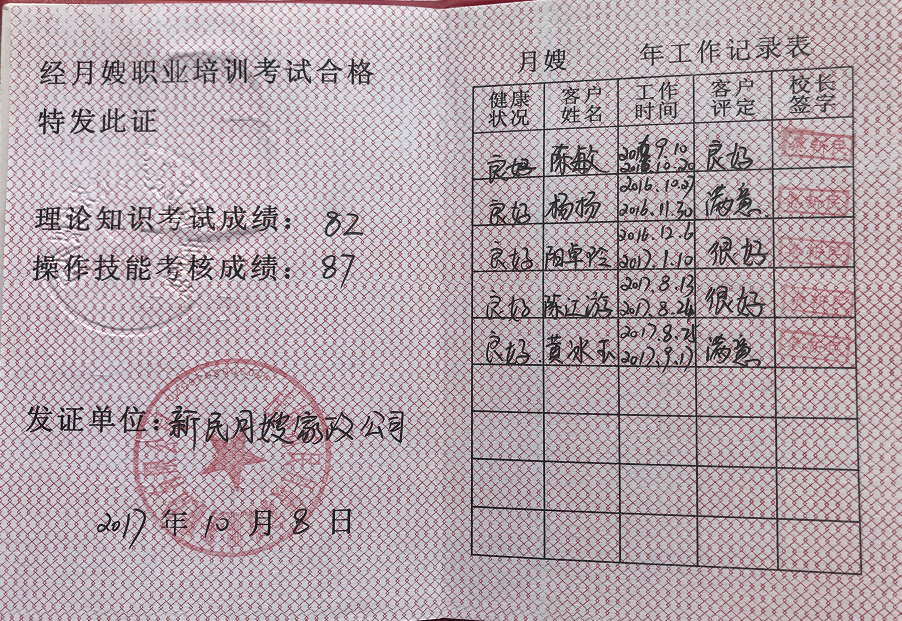 经月嫂职业培训考试合格
特发此证
理论知识考试成绩：82
操作技能考核成绩：87
发证单位：新民月嫂家政公司
2017年10月8日
月嫂 年工作记录表
健康状况 客户姓名 工作时间 客户评定 校长签字
良好 陈敏 9.10 10.20 良好
良好 杨杨 2016.10.27 2016.11.30 满意
良好 阳卓玲 2016.12.6 2017.1.10 很好
良好 陈江游 2017.8.13 2017.8.24 很好
良好 黄冰玉 2017.8.2 2017.9.17 满意